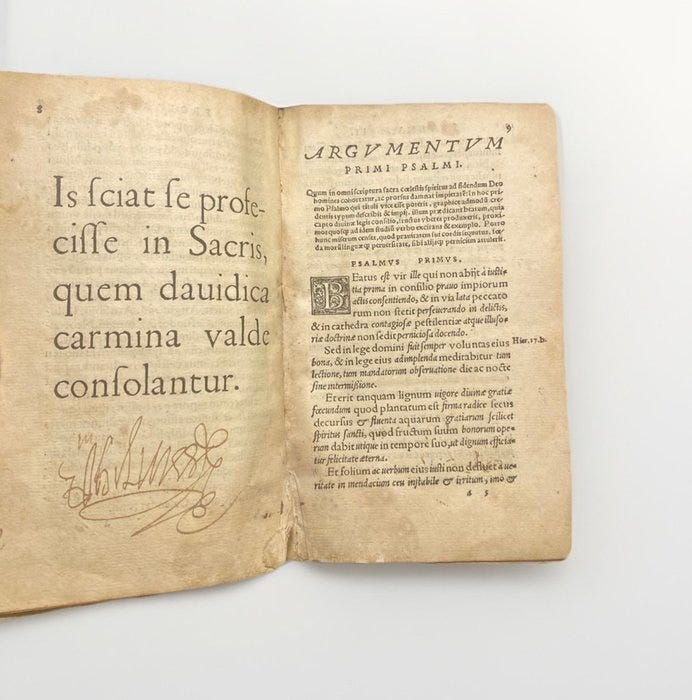 8
Is ſciat ſe profe-
ciſſe in Sacris,
quem dauidica
carmina valde
conſolantur.
9
ARGVMENTVM
PRIMI PSALMI.
Quum in omni ſcriptura ſacra cœleſtis ſpiritus ad fidendum Deo
homines cohortatur, ac prorſus damnat impietatē: In hoc pri-
mo Pſalmo qui tituli vice eſſe poterit, graphice admodū cre-
dentis typum deſcribit & impij. illum prædicant beatum, quia
capto diuinæ legis conſilio, fructus vberes produxerit, proxi-
mos quoſq; ad idem ſtudiū verbo excitans & exemplo. Porro
hunc miſerum cenſet, quod prauitatem ſui cordis ſequutus,
da morſ linguæq; peruerſitate, ſibi alijſq; pernicium attulerit.
PSALMVS PRIMVS.
BEatus est vir ille qui non abijt à iuſti-
tia prima in conſilio prauo impiorum
actis conſentiendo, & in via lata peccato
rum non ſtetit perſeuerando in delictis,
& in cathedra contagioſæ peſtilentiæ atque illuſo-
riæ doctrinæ non ſedit pernicioſa docendo.
Sed in lege domini fuit ſemper voluntas eius Hier. 17. b.
bona, & in lege eius adimplenda meditabitur tum
lectione, tum mandatorum obſeruatione die ac nocte
ſine intermiſſione.
Et erit tanquam lignum uigore diuinæ gratiæ
fœcundum quod plantatum eſt firma radice ſecus
decurſus & fluenta aquarum gratiarum ſcilicet
ſpiritus ſancti, quod fructum ſuum bonorum ope-
rum dabit utique in tempore ſuo, ut dignum efficia-
tur felicitate æterna.
Et folium ac verbum eius iuſti non defluet à ue-
ritate in mendacium ceu inſtabile & irritum, imò &
a 5